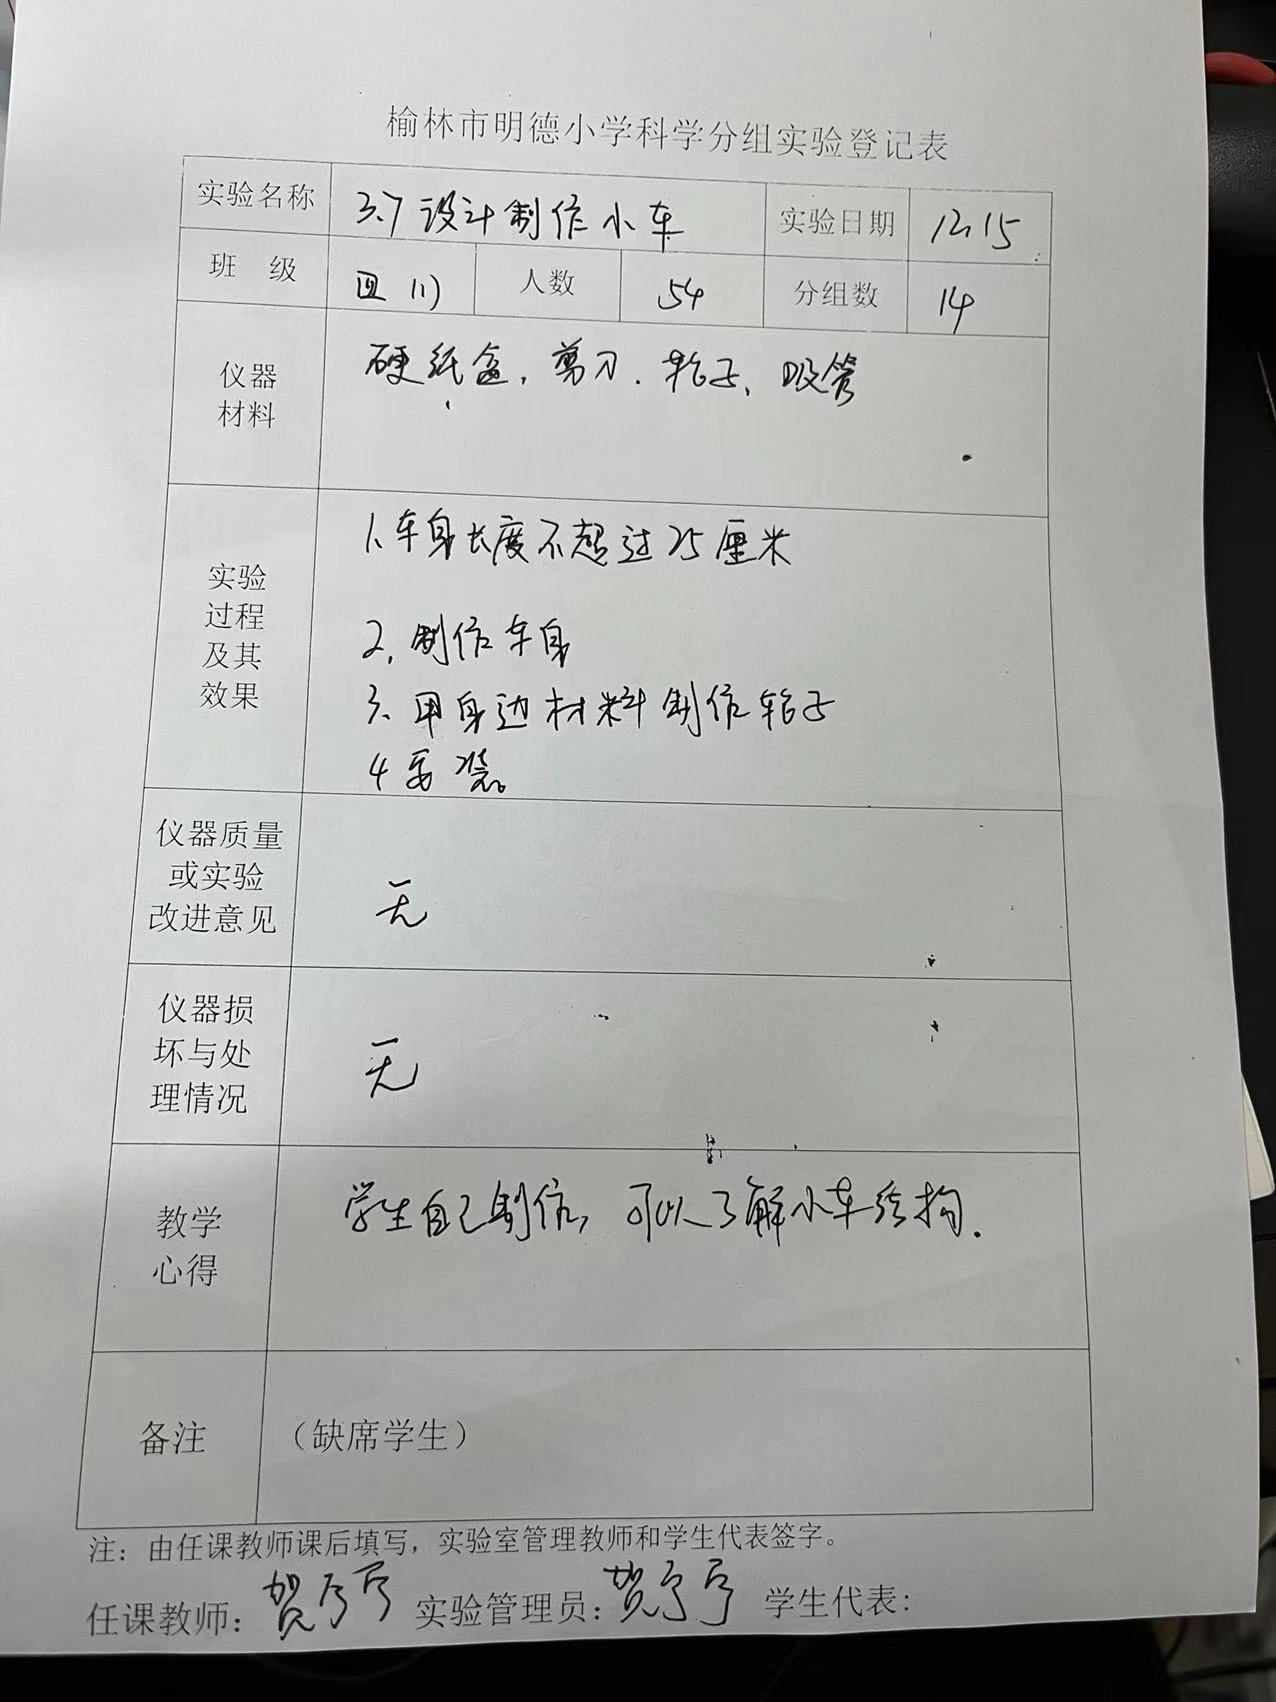 榆林市明德小学科学分组实验登记表
实验名称 3.7 设计制作小车 实验日期 12.15
班 级 四 (1) 人数 54 分组数 14
仪器
材料
硬纸盒, 剪刀. 轮子、吸管
实验
过程
及其
效果
1、车身长度不超过25厘米
2、制作车身
3、用身边材料制作轮子
4 安装。
仪器质量
或实验
改进意见
无
仪器损
坏与处
理情况
无
教学
心得
学生自己制作, 可以了解小车结构.
备注 （缺席学生）
注：由任课教师课后填写，实验室管理教师和学生代表签字。
任课教师: 贺 实验管理员: 贺 学生代表: